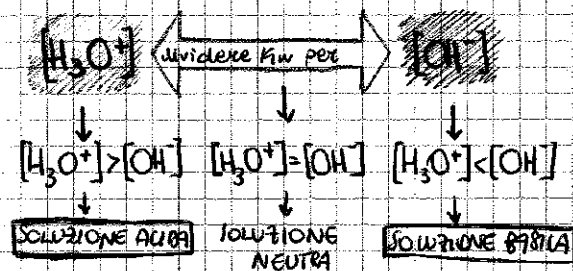 [H₃O⁺] dividere Kw per [OH⁻]
[H₃O⁺]>[OH] [H₃O⁺]=[OH] [H₃O⁺]<[OH]
SOLUZIONE ACIDA SOLUZIONE NEUTRA SOLUZIONE BASICA